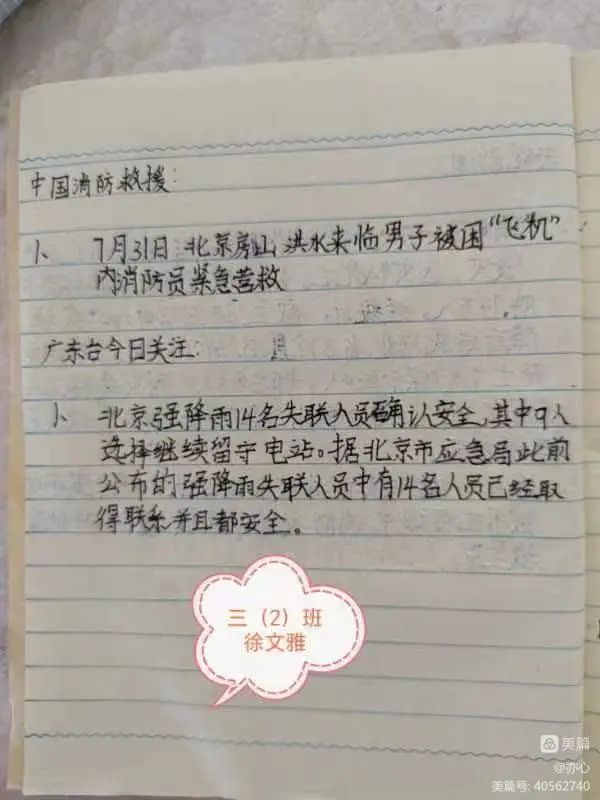 中国消防救援:
1、 7月31日 北京房山 洪水来临男子被困“飞机”
内消防员紧急营救
广东台今日关注:
1、 北京强降雨14名失联人员确认安全,其中9人
选择继续留守电站。据北京市应急局此前
公布的强降雨失联人员中有14名人员已经取
得联系并且都安全。
三（2）班
徐文雅
美篇
@亦心
美篇号: 40562740